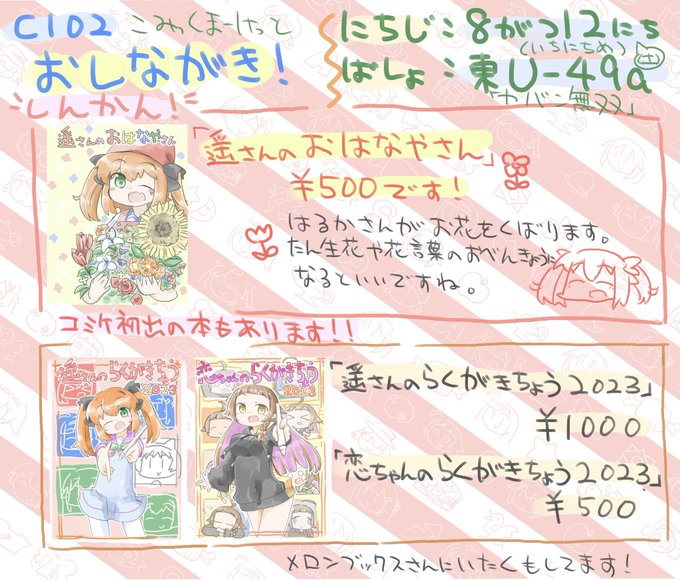 C102 こみっくまーけっと
おしながき!
にちじ:8がつ12にち
(いちにちめ)
ばしょ:東U-49a
「カバン無双」
しんかん!
遥さんのおはなやさん
「遥さんのおはなやさん」
¥500です!
はるかさんがお花をくばります。
たん生花や花言葉のおべんきょうに
なるといいですね。
コミケ初出の本もあります!!
遥さんのらくがきちょう
2023
恋ちゃんのらくがきちょう
2023
「遥さんのらくがきちょう2023」
¥1000
「恋ちゃんのらくがきちょう2023」
¥500
メロンブックスさんにいたくもしてます!